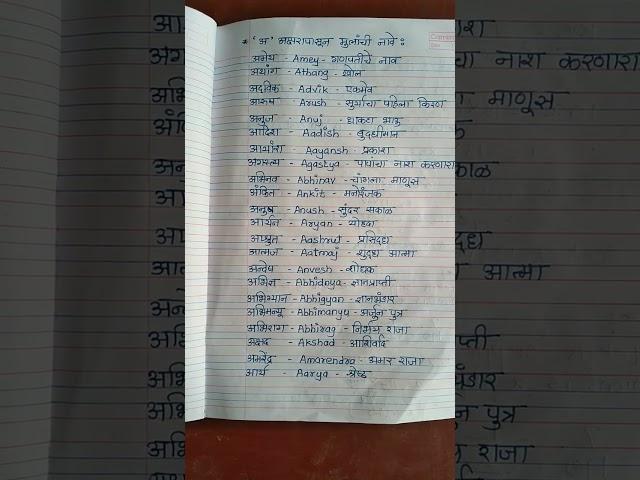 * 'अ' अक्षरापासून मुलांची नावे :
अमेय - Amey - गणपतीचे नाव
अथांग - Athang - खोल
अद्विक - Advik - एकमेव
आरुष - Arush - सूर्याचा पहिला किरण
अनुज - Anuj - धाकटा भाऊ
आदिश - Aadish - बुद्धीमान
आयांश - Aayansh - प्रकाश
अगस्त्य - Agastya - पापांचा नाश करणारा
अभिनव - Abhinav - चांगला माणूस
अंकित - Ankit - मनोरंजक
अनुष - Anush - सुंदर सकाळ
आर्यन - Aryan - योद्धा
आश्रुत - Aashrut - प्रसिद्ध
आत्मज - Aatmaj - शुद्ध आत्मा
अन्वेष - Anvesh - शोधक
अभिज्ञ - Abhidnya - ज्ञानप्राप्ती
अभिग्यान - Abhigyan - ज्ञानभंडार
अभिमन्यू - Abhimanyu - अर्जुन पुत्र
अभिराग - Abhirag - राजा
अक्षद - Akshad - आशिर्वाद
अमरेंद्र - Amarendra - अमर राजा
आर्य - Aarya - श्रेष्ठ